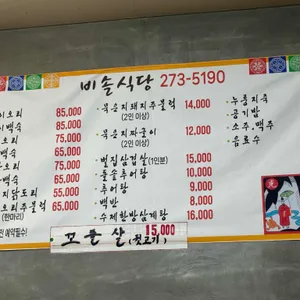 비솔식당 273-5190
오리 85,000
백숙 85,000
오리 75,000
백숙 65,000
오리 75,000
백숙 65,000
닭도리 55,000
오리주물럭 65,000
(한마리)
예약필수!
· 묵은지돼지주물럭 14,000
(2인 이상)
· 묵은지짜굴이 12,000
(2인 이상)
· 벌집삼겹살(1인분) 15,000
· 돌솥추어탕 10,000
· 추어탕 9,000
· 백반 8,000
· 수제한방삼계탕 16,000
· 누룽지죽
· 공기밥
· 소주, 맥주
· 음료수
모듬살 (뒷고기) 15,000